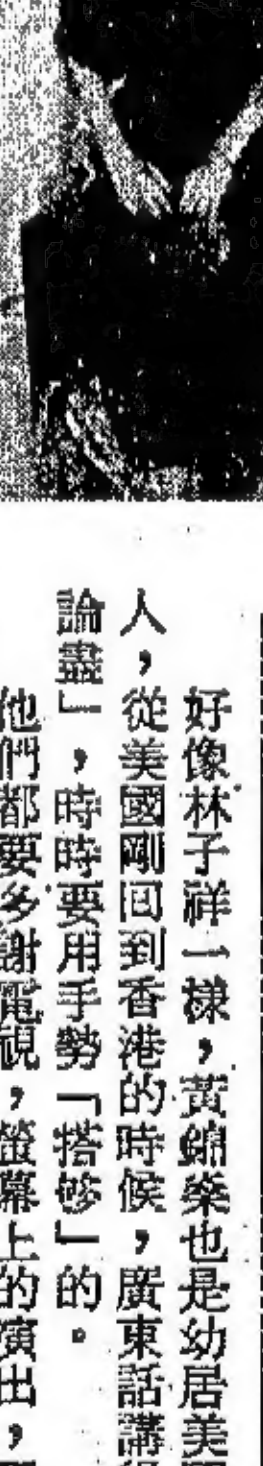 好像林子祥一樣，黃錦燊也是幼居美
人，從美國剛回到香港的時候，廣東話講
論盡」，時時要用手勢「搭够」的。
他們都要多謝電視，螢幕上的演出，